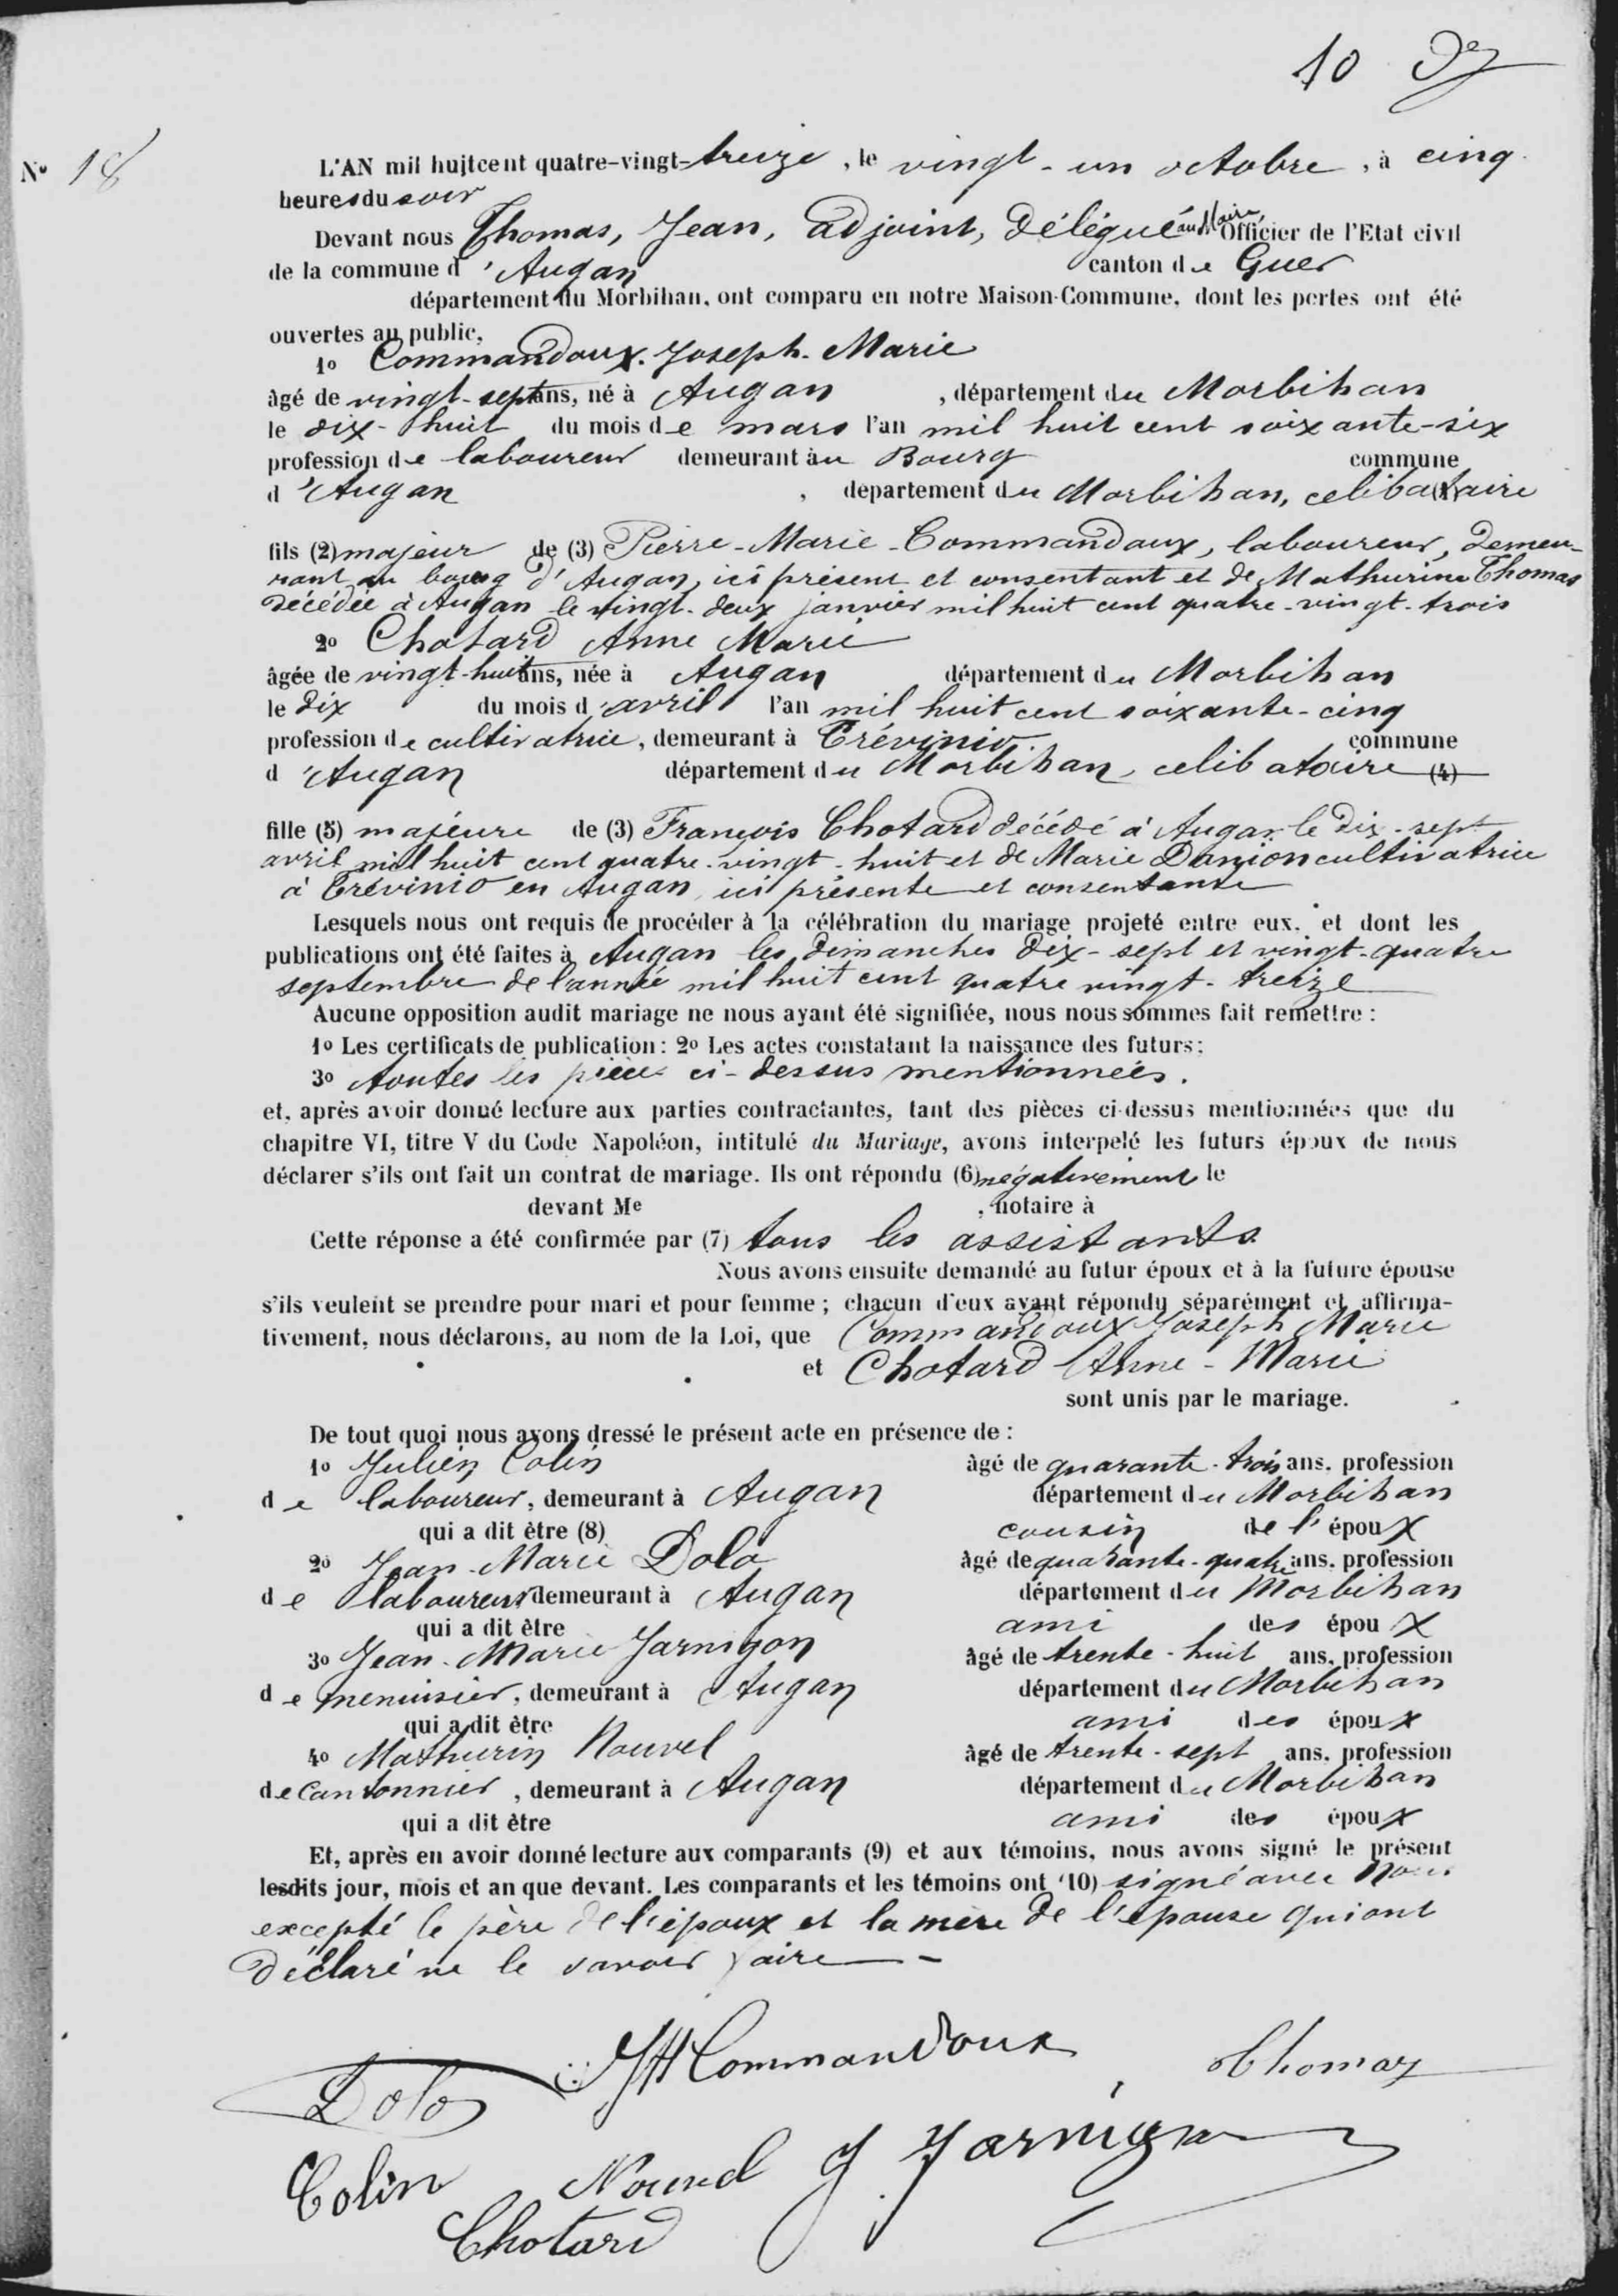 10
Nº 18
L'AN mil huitcent quatre-vingt-treize, le vingt-un octobre, à cinq
heures du soir
Devant nous Thomas, Jean, adjoint, délégué au Maire Officier de l'Etat civil
de la commune d'Augan canton de Guer
département du Morbihan, ont comparu en notre Maison-Commune, dont les portes ont été
ouvertes au public,
1º Commandoux Joseph-Marie
âgé de vingt-sept ans, né à Augan, département du Morbihan
le dix-huit du mois de mars l'an mil huit cent soixante-six
profession de laboureur demeurant au Bourg commune
d'Augan, département du Morbihan, celibataire
fils (2) majeur de (3) Pierre-Marie-Commandoux, laboureur, demeu-
rant au bourg d'Augan, ici présent et consentant et de Mathurine Thomas
décédée à Augan le vingt-deux janvier mil huit cent quatre-vingt-trois
2º Chotard Anne Marie
âgée de vingt-huit ans, née à Augan département du Morbihan
le dix du mois d'avril l'an mil huit cent soixante-cinq
profession de cultivatrice, demeurant à Trévinio commune
d'Augan département du Morbihan, celibataire (4)
fille (5) majeure de (3) François Chotard décédé à Augan le dix-sept
avril mil huit cent quatre-vingt-huit et de Marie Danion cultivatrice
à Trévinio en Augan, ici présente et consentante
Lesquels nous ont requis de procéder à la célébration du mariage projeté entre eux, et dont les
publications ont été faites à Augan les dimanches dix-sept et vingt-quatre
septembre de l'année mil huit cent quatre vingt-treize
Aucune opposition audit mariage ne nous ayant été signifiée, nous nous sommes fait remettre :
1º Les certificats de publication : 2º Les actes constatant la naissance des futurs ;
3º toutes les pièces ci-dessus mentionnées.
et, après avoir donné lecture aux parties contractantes, tant des pièces ci-dessus mentionnées que du
chapitre VI, titre V du Code Napoléon, intitulé du Mariage, avons interpelé les futurs époux de nous
déclarer s'ils ont fait un contrat de mariage. Ils ont répondu (6) négativement le
devant Me , notaire à
Cette réponse a été confirmée par (7) tous les assistants
Nous avons ensuite demandé au futur époux et à la future épouse
s'ils veulent se prendre pour mari et pour femme ; chacun d'eux ayant répondu séparément et affirma-
tivement, nous déclarons, au nom de la Loi, que Commandoux Joseph Marie
et Chotard Anne-Marie
sont unis par le mariage.
De tout quoi nous avons dressé le présent acte en présence de :
1º Julien Colin âgé de quarante-trois ans. profession
de laboureur, demeurant à Augan département du Morbihan
qui a dit être (8) cousin de l'époux
2º Jean-Marie Dolo âgé de quarante-quatre ans. profession
de laboureur demeurant à Augan département du Morbihan
qui a dit être ami des époux
3º Jean-Marie Jarnigon âgé de trente-huit ans, profession
de menuisier, demeurant à Augan département du Morbihan
qui a dit être ami des époux
4º Mathurin Nouvel âgé de trente-sept ans. profession
de Cantonnier, demeurant à Augan département du Morbihan
qui a dit être ami des époux
Et, après en avoir donné lecture aux comparants (9) et aux témoins, nous avons signé le présent
lesdits jour, mois et an que devant. Les comparants et les témoins ont (10) signé avec nous
excepté le père de l'époux et la mère de l'épouse qui ont
déclaré ne le savoir faire
Commandoux Thomas
Dolo
J Jarnigon
Colin Nouvel
Chotard